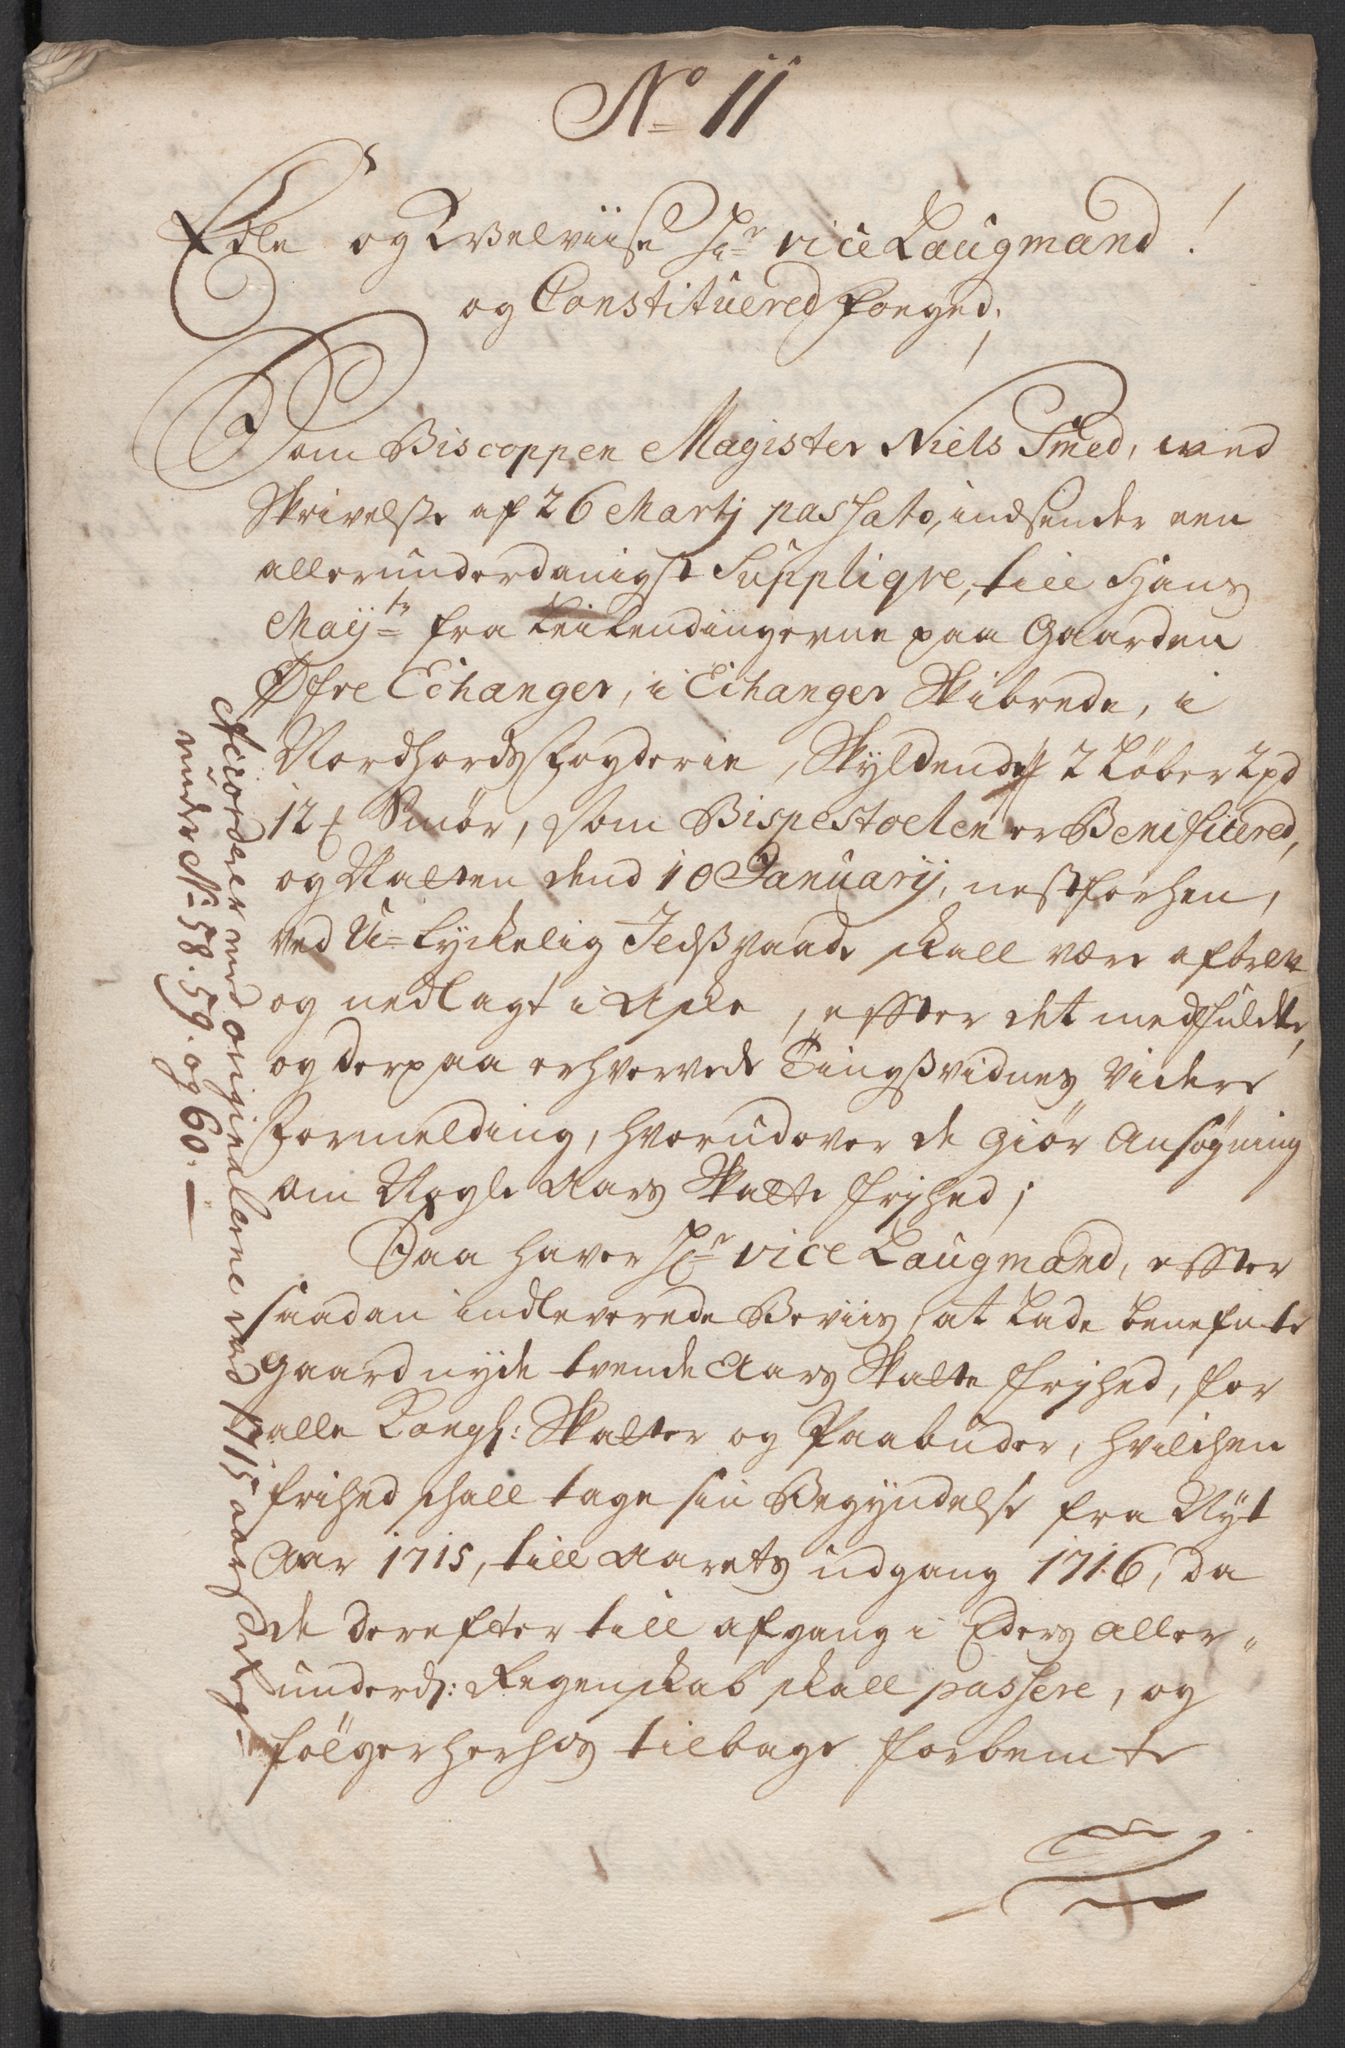 No 11
Edle og Welviise Hr vice Laugmand!
og Constituered Foeged;
Som Biscoppen Magister Niels Smed, med
Skrivelse af 26 Martij passato, indsender een
allerunderdanigst Supplique, till Hans
Mayts fra Leilendingerne paa Gaarden
Øfre Echanger, i Eihanger Skibrede, i
Nordhords Fogderie, Skyldende 2 Løber 2 pd
12 Smør, som Bispestoelen er Benificered,
og Natten dend 10 January, nestforhen,
ved U-lyckelig Ildsvaade skall være afbrent
og nedlagt i Aske, effter det medfuldte,
og derpaa erhvervede Tingsvidnes videre
Formelding, hvorudover de giør Ansøgning
om Nogle Aars Skatte fryhed;
Daa haver Hr vice Laugmand, effter
saadan indleverede Beviis, at lade benefnte
gaard nyde tvende Aars Skatte fryhed, for
alle Kongl: Skatter og Paabuder, hvilchen
frihed skall tage sin Begyndelse fra Nyt
Aar 1715, till Aarets udgang 1716, da
de derefter till afgang i Eders Aller-
underd: Regenskab skall passere, og
følger herhos tilbage forbemte
Accorderer med originalerne ved 1715 aars
under No 58. 59. og 60.